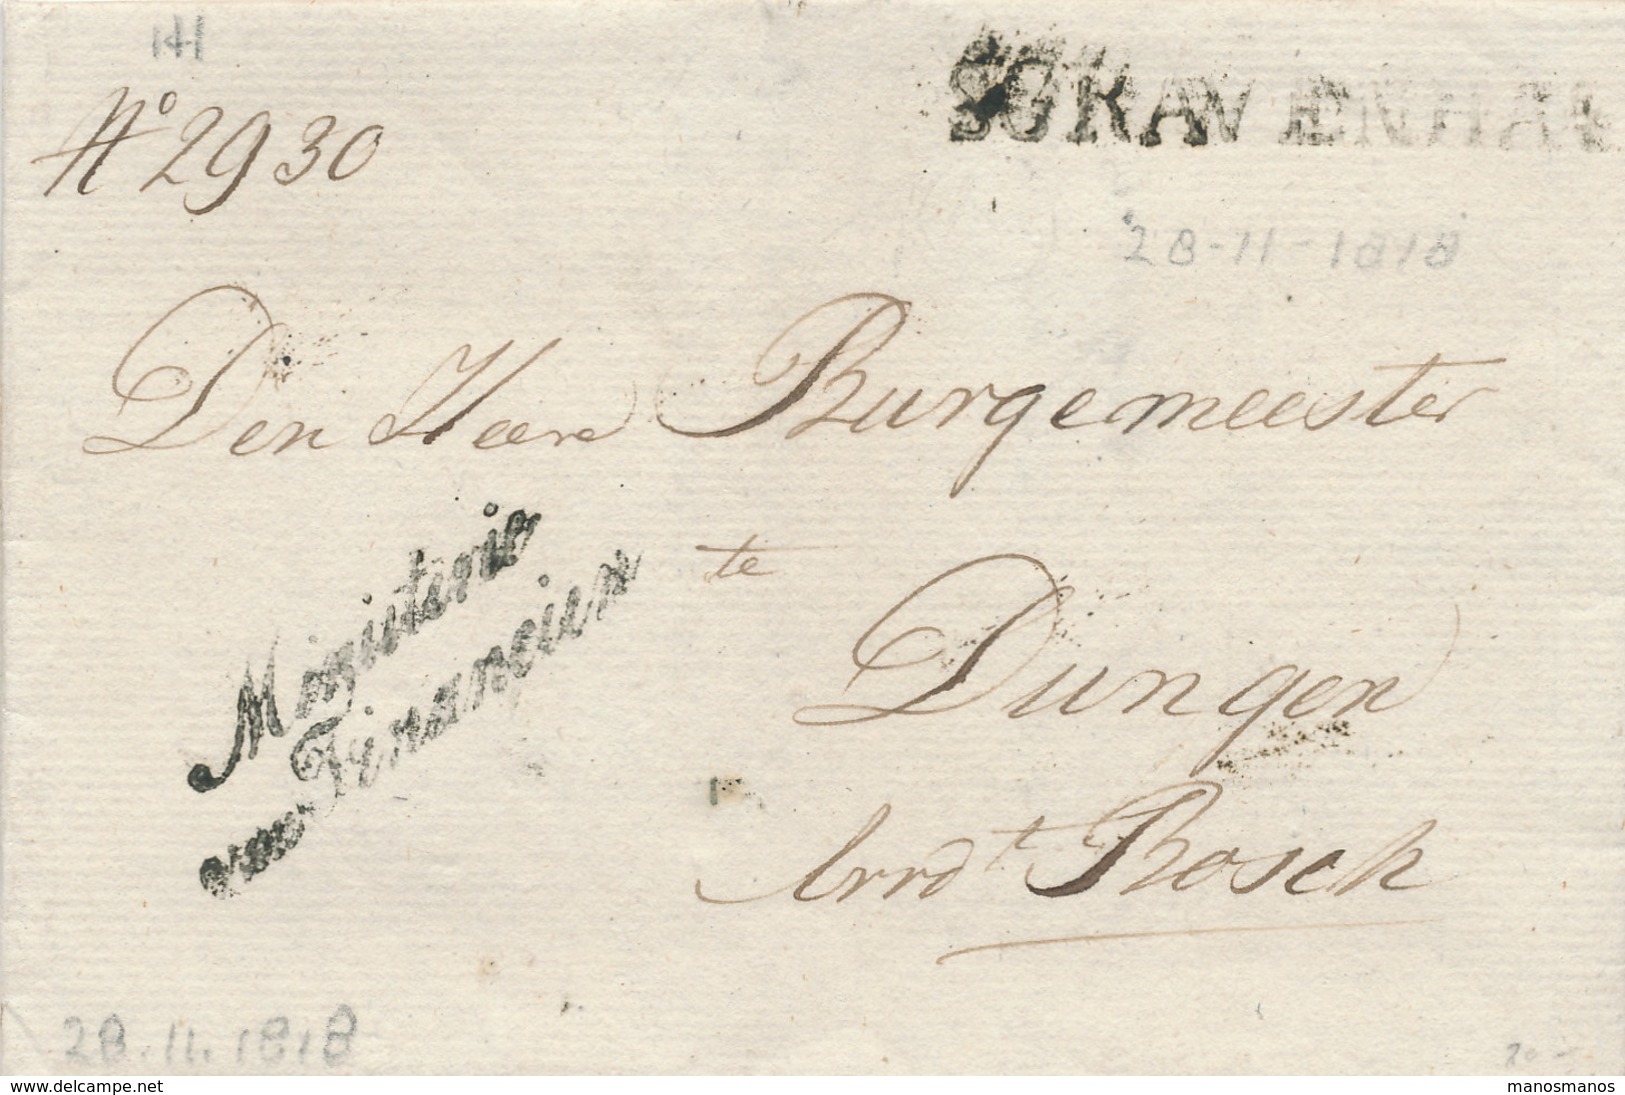 141
SGRAVENHA
No 2930
28-11-1818
Den Heere Burgemeester
te
Dungen
Arrdt Bosch
Ministerie
van Financien
28.11.1818
20 -
www.delcampe.net
manosmanos